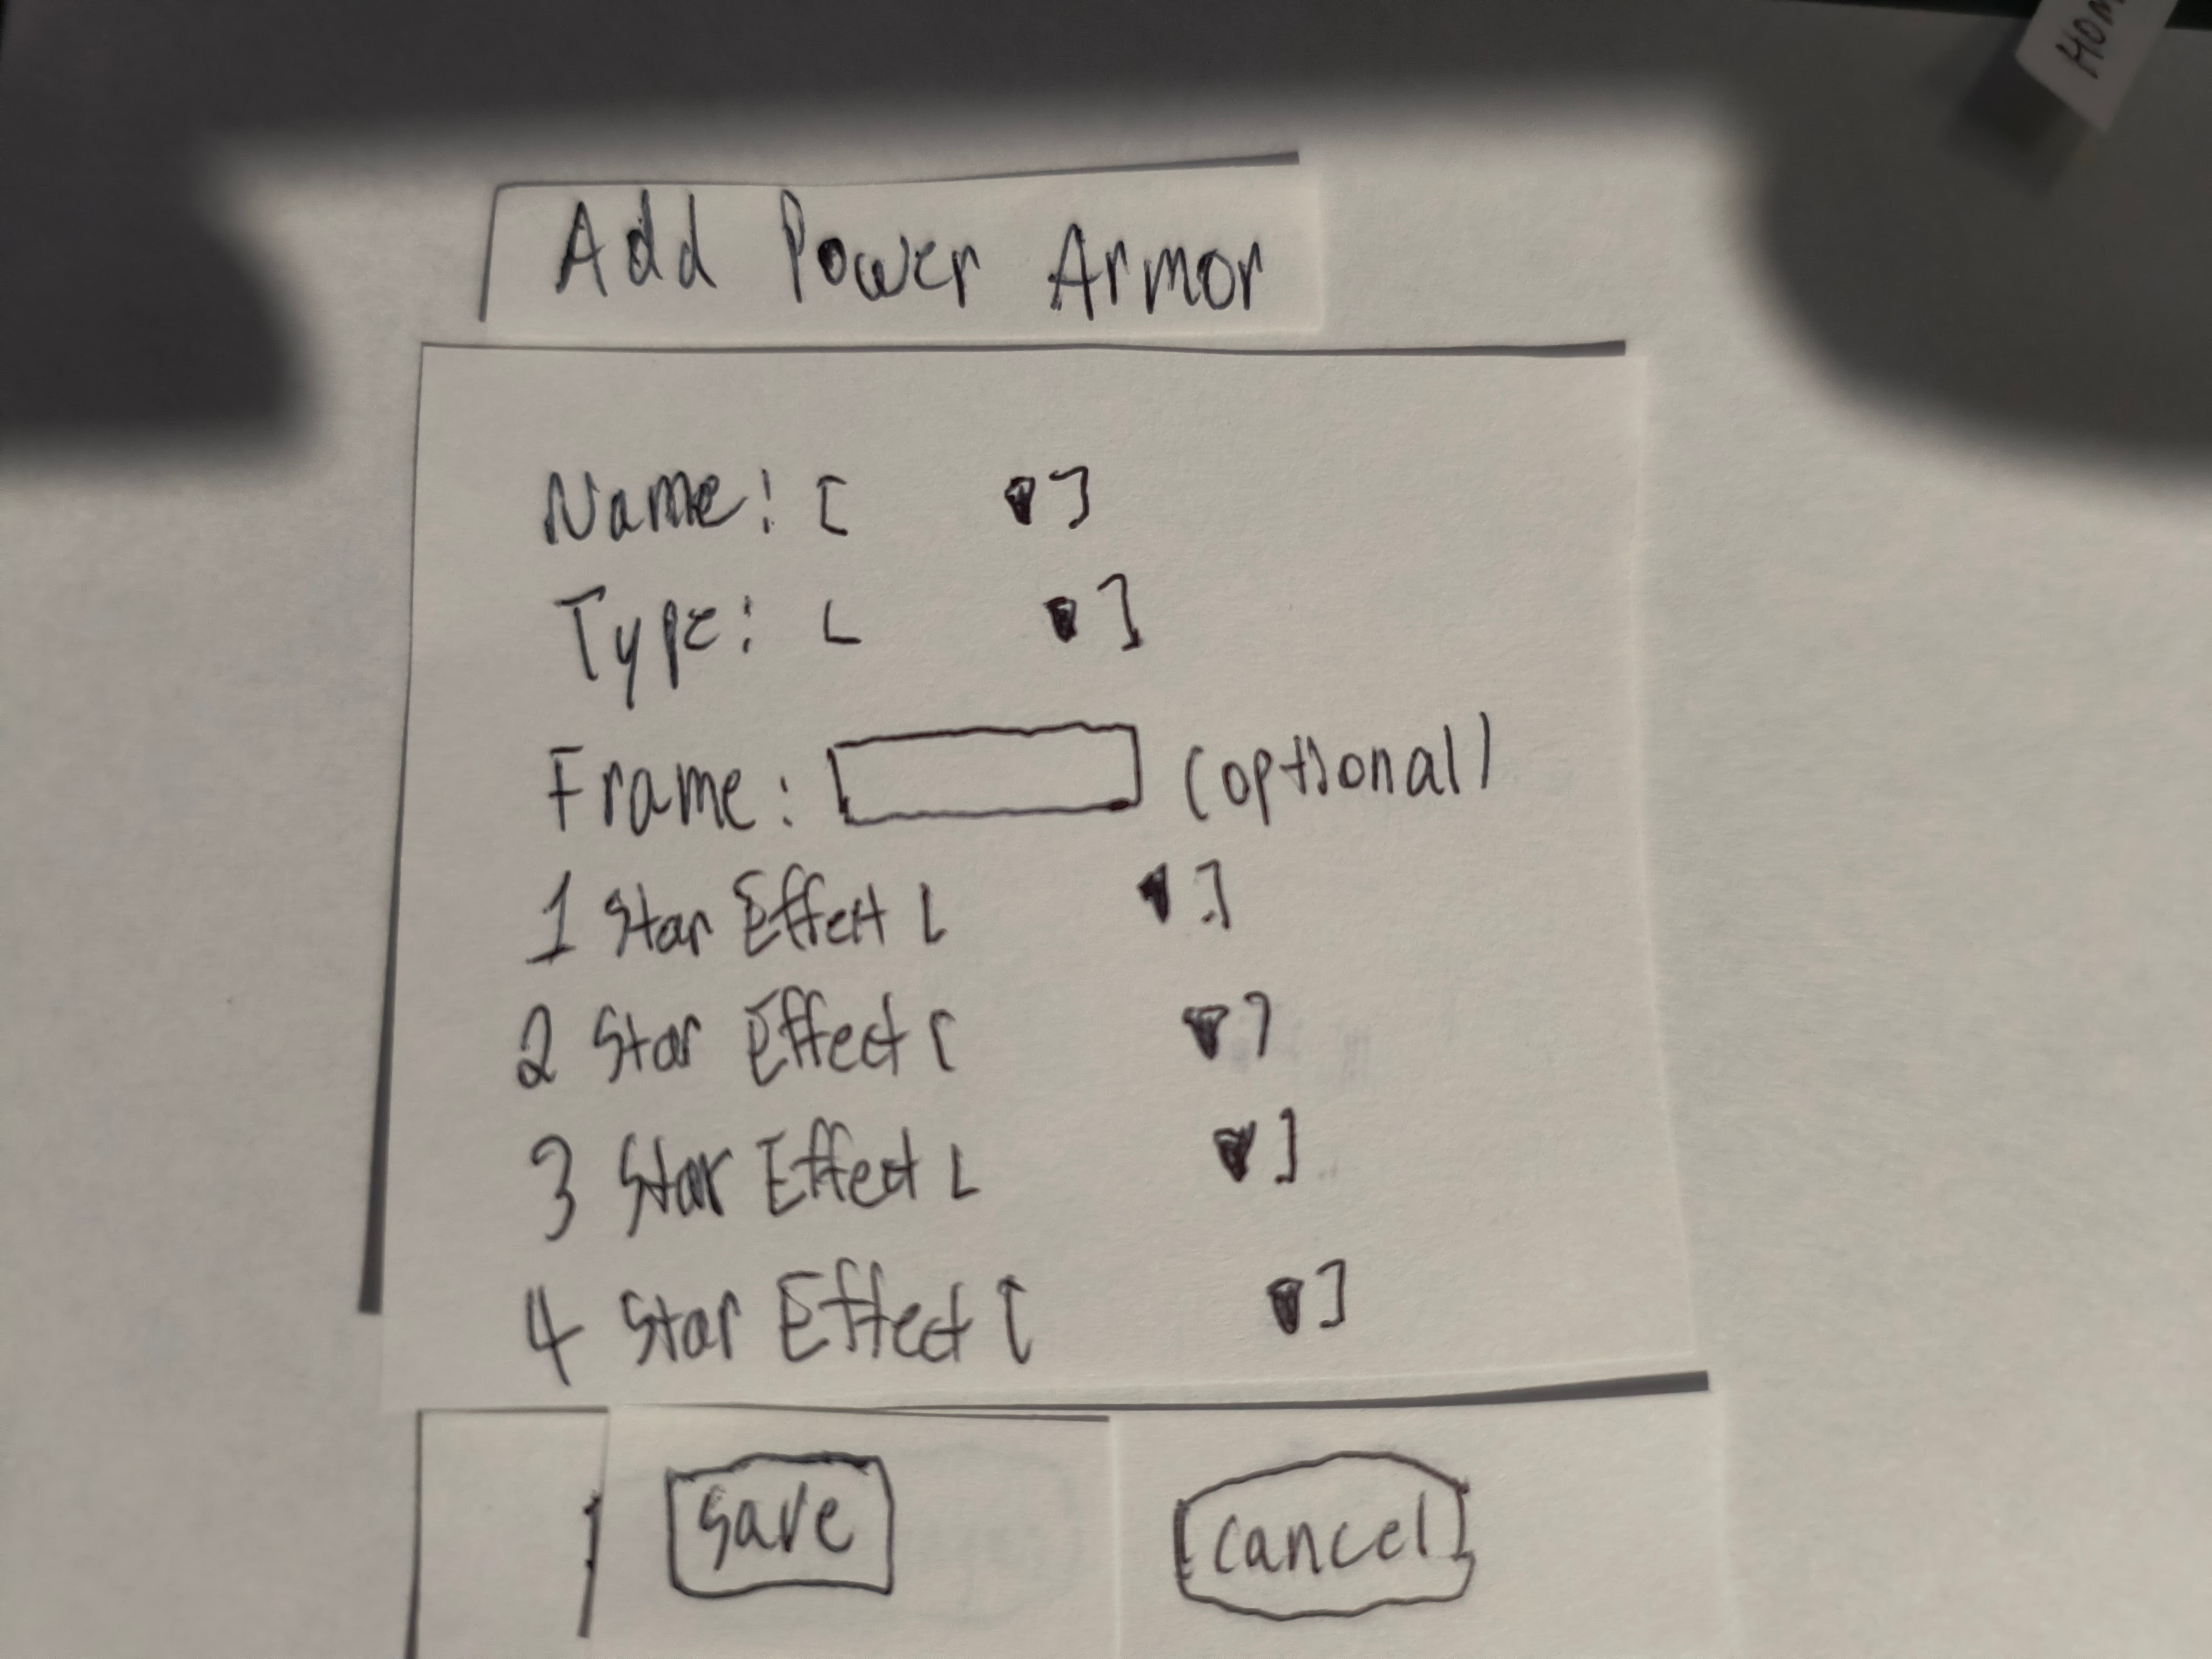 HOM
Add Power Armor
Name: [ ▼]
Type: [ ▼]
Frame: (optional)
1 Star Effect [ ▼]
2 Star Effect [ ▼]
3 Star Effect [ ▼]
4 Star Effect [ ▼]
Save Cancel